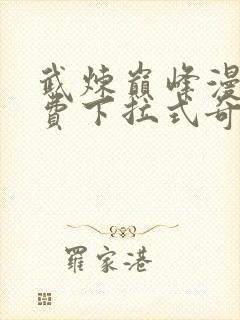 武煉巔峰漫
費下拉式奇
羅家港